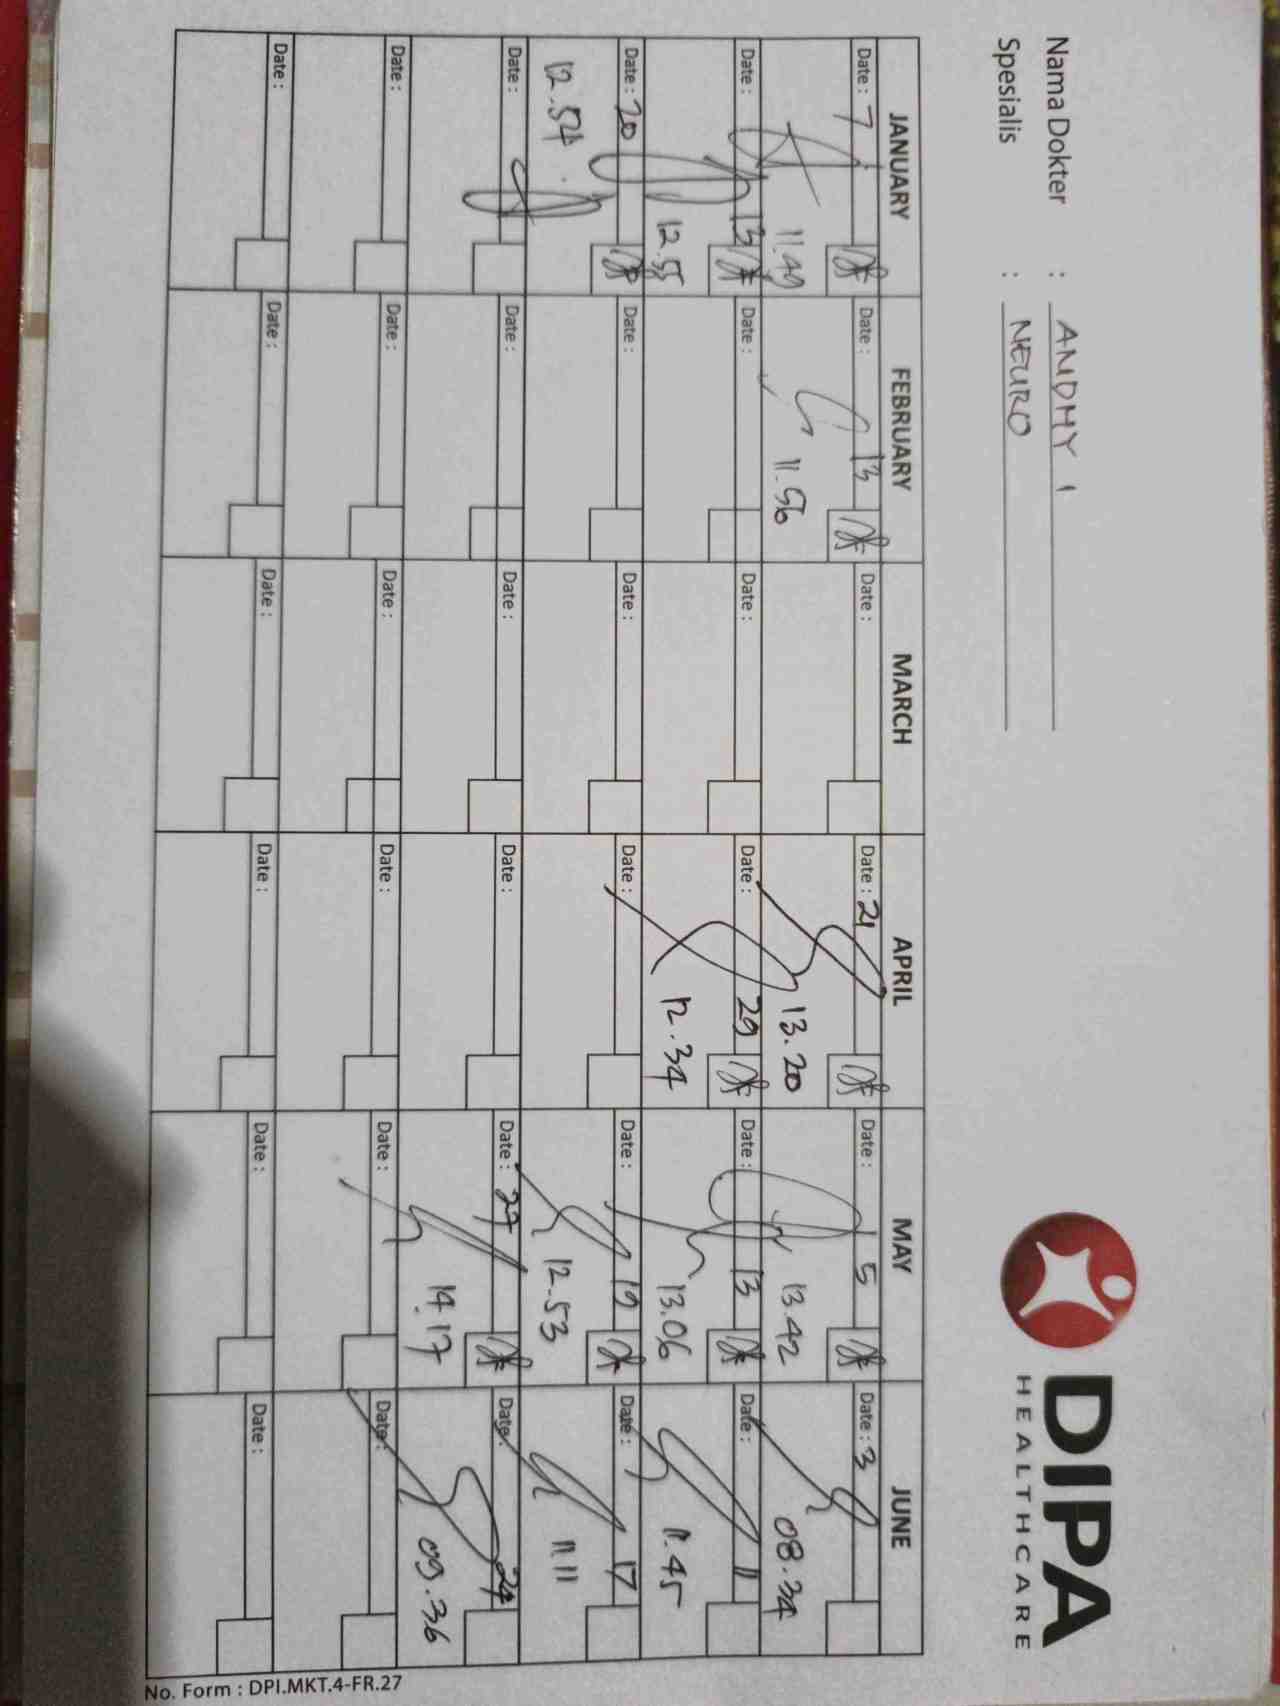 DIPA
HEALTHCARE
Nama Dokter : ANDHY 1
Spesialis : NEURO
JANUARY FEBRUARY MARCH APRIL MAY JUNE
Date : 7 Date : 13 Date : Date : 21 Date : 5 Date : 3
11.49 11.56 13.20 13.42 08.34
Date : 13 Date : Date : Date : 29 Date : 13 Date : 11
12.55 12.34 13.06 11.45
Date : 20 Date : Date : Date : Date : 19 Date : 17
12.54 12.53 11.11
Date : Date : Date : Date : Date : 27 Date : 24
14.17 09.36
Date : Date : Date : Date : Date : Date :
Date : Date : Date : Date : Date : Date :
No. Form : DPI.MKT.4-FR.27